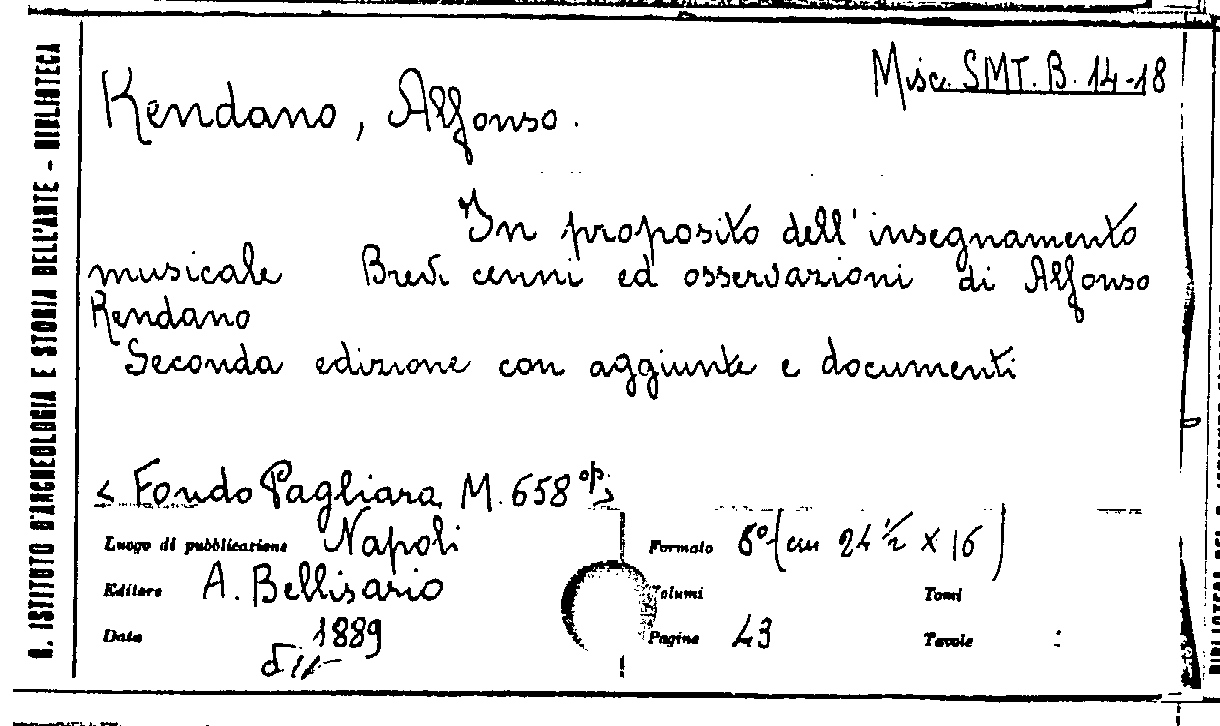 Misc. SMT. B. 14-18
Rendano, Alfonso.
In proposito dell'insegnamento
musicale Brevi cenni ed osservazioni di Alfonso
Rendano
Seconda edizione con aggiunte e documenti
< Fondo Pagliara M. 658 op>
Luogo di pubblicazione Napoli
Editore A. Bellisario
Data 1889
Formato 8° (cm 24 1/2 x 16)
Volumi Tomi
Pagine 43 Tavole :
R. ISTITUTO D'ARCHEOLOGIA E STORIA DELL'ARTE - BIBLIOTECA